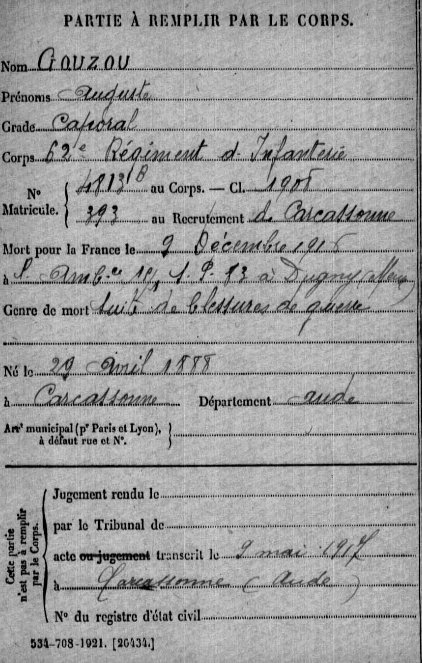 PARTIE À REMPLIR PAR LE CORPS.
Nom GOUZOU
Prénoms Auguste
Grade Caporal
Corps 62e Régiment d'Infanterie
N° Matricule. { 4813 18 au Corps. — Cl. 1908
393 au Recrutement de Carcassonne
Mort pour la France le 9 Décembre 1916
à l'Amb.ce S.P. 13 à Dugny (Meuse)
Genre de mort Suite de blessures de guerre
Né le 29 Avril 1888
à Carcassonne Département Aude
Arr' municipal (pr Paris et Lyon),
à défaut rue et N°. }
Cette partie n'est pas à remplir par le Corps. {
Jugement rendu le
par le Tribunal de
acte ou jugement transcrit le 9 mai 1917
à Carcassonne (Aude)
N° du registre d'état civil
534-708-1921. [26434.]